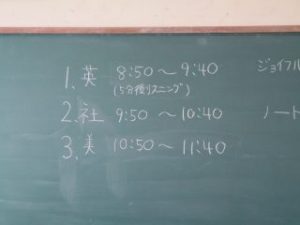 1. 英 8:50～9:40
(5分後リスニング)
2. 社 9:50～10:40
3. 美 10:50～11:40
ジョイフル
ノート